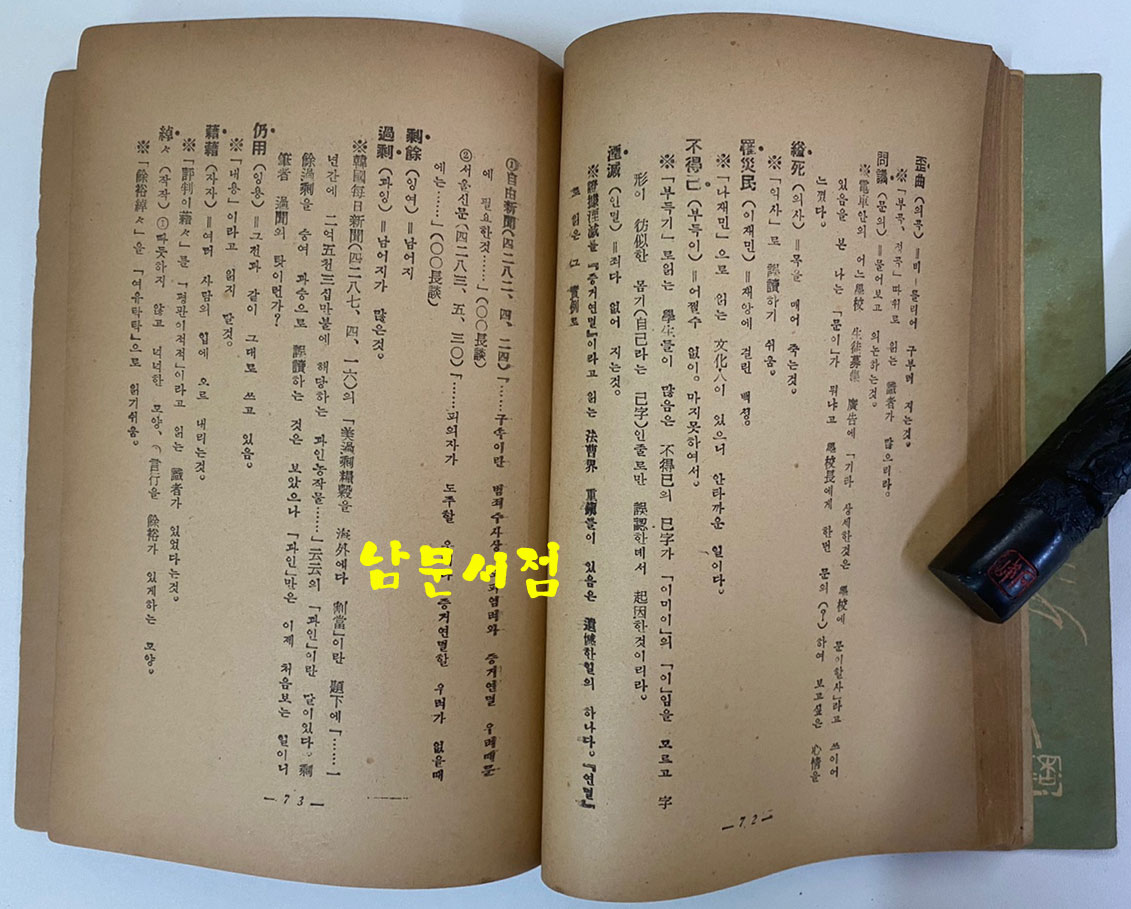 歪曲 (의곡)＝비—틀리어 구부러 지는것。
※「부곡, 정곡」따위로 읽는 識者가 많으리라。
問議 (문의)＝물어보고 의논하는것。
※電車안의 어느學校 生徒募集 廣告에 「기타 상세한것은 學校에 문이할사」라고 쓰이어
있음을 본 나는 「문이」가 뭐냐고 學校長에게 한번 문의(?)하여 보고싶은 心情을
느꼈다。
縊死 (의사)＝목을 매어 죽는것。
※「익사」로 誤讀하기 쉬움。
罹災民 (이재민)＝재앙에 걸린 백성。
※「나재민」으로 읽는 文化人이 있으니 안타까운 일이다。
不得已 (부득이)＝어쩔수 없이。마지못하여서。
※「부득기」로읽는 學生들이 많음은 不得已의 已字가 「이미이」의 「이」임을 모르고 字
形이 彷似한 몸기(自己라는 己字)인줄로만 誤認한데서 起因한것이리라。
湮滅 (인멸)＝죄다 없어 지는것。
※證據湮滅을 『증거연멸』이라고 읽는 法曹界 重鎭들이 있음은 遺憾한일의 하나다。『연멸』
로 읽은 그 實例로
—72—
①自由新聞(四二八二、四、二四)「……구속이란 범죄수사상 증거연멸 우려때문
에 필요한것……」(〇〇長談)
②서울신문(四二八三、五、三〇)「……피의자가 도주할 증거연멸한 우려가 없을때
에는……」(〇〇長談)
剩餘 (잉여)＝남어지
過剩 (과잉)＝남어지가 많은것。
※韓國每日新聞(四二八七、四、一六)의 「美過剩糧穀을 海外에다 割當」이란 題下에 「……一
년간에 二억五천三십만불에 해당하는 과인농작물……」云云의 「과인」이란 말이있다。剩
餘過剩을 승여 과승으로 誤讀하는 것은 보았으나 「과인」만은 이제 처음보는 일이니
筆者 過聞의 탓이런가?
仍用 (잉용)＝그전과 같이 그대로 쓰고 있음。
※「내용」이라고 읽지 말것。
藉藉 (자자)＝여러 사람의 입에 오르 내리는것。
※「評判이藉々」를 「평판이적적」이라고 읽는 識者가 있었다는것。
綽々 (작작) ①따뜻하지 않고 넉넉한 모양、②言行을 餘裕가 있게하는 모양。
※「餘裕綽々」을 「여유탁탁」으로 읽기쉬움。
—73—
남문서점